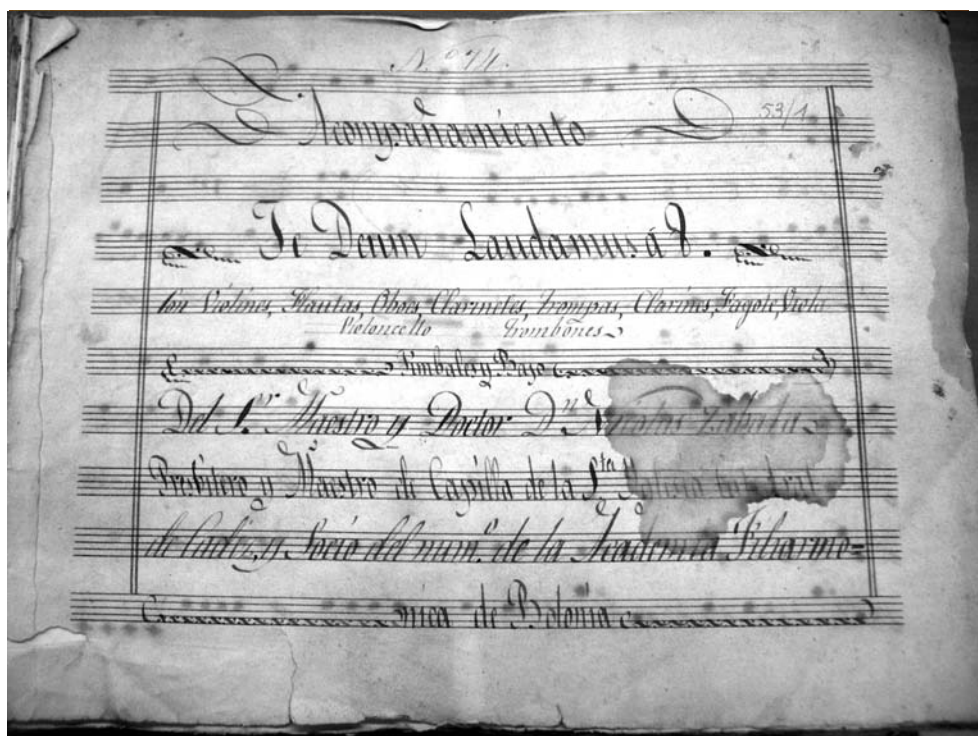 N.º 74.
53/1
Acompañamiento
Te Deum Laudamus á 8.
Con Violines, Flautas, Obois, Clarinetes, Trompas, Clarines, Fagote, Viola
Violoncello Trombones
Timbales y Bajo
Del S.or Maestro y Doctor D.n Nicolas Zabala
Presbitero y Maestro de Capilla de la S.ta Yglesia Catedral
de Cadiz, y Socio del num.º de la Academia Filarmo=
nica de Bolonia